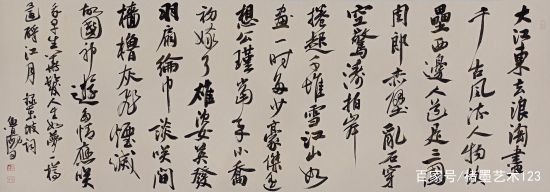 大江東去浪淘盡
千古風流人物故
壘西邊人道是三國
周郎赤壁亂石穿
空驚濤拍岸
捲起千堆雪江山如
畫一時多少豪傑遙
想公瑾當年小喬
初嫁了雄姿英發
羽扇綸巾談笑間
檣櫓灰飛煙滅
故國神遊多情應笑
我早生華髮人生如夢一樽
還酹江月 錄東坡詞
百家号/楮墨艺术123